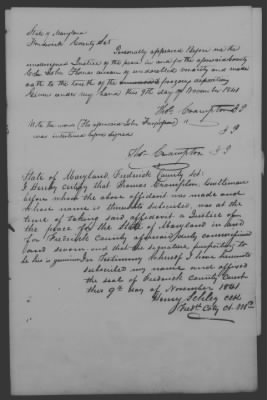 State of Maryland
Frederick County Sct
Personally appeared before me the
undersigned Justice of the peace in and for the aforesaid County
John Thomas of undoubted veracity and made
oath to the truth of the foregoing deposition
Given under my hand this 9th day of November 1841
Tho. Crampton J P
Note the word (The aforesaid John
was interlined before signed
J P
Tho. Crampton J P
State of Maryland, Frederick County Sct:
I Hereby certify that Thomas Crampton, Gentleman
before whom the above affidavit was made and
whose name is thereto subscribed, was at the
time of taking said affidavit a Justice of
the peace for the State of Maryland in and
for Frederick County aforesaid duly commissioned
and sworn and that the signature purporting to
be his is genuine. In Testimony whereof I have hereunto
subscribed my name and affixed
the seal of Frederick County Court
this 9th day of November 1841
Henry Schley Clk
Fredk. Cty Ct. Md.